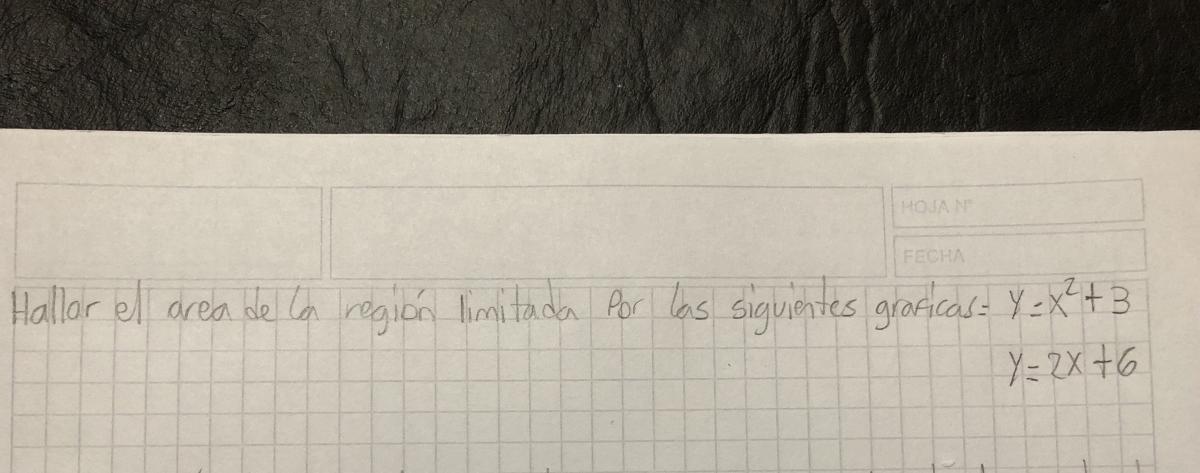 HOJA Nº
FECHA
Hallar el area de la región limitada Por las siguientes graficas= y=x²+3
y=2x+6